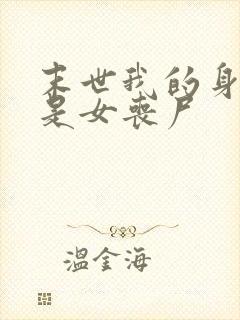 末世我的身
是女丧尸
温金海